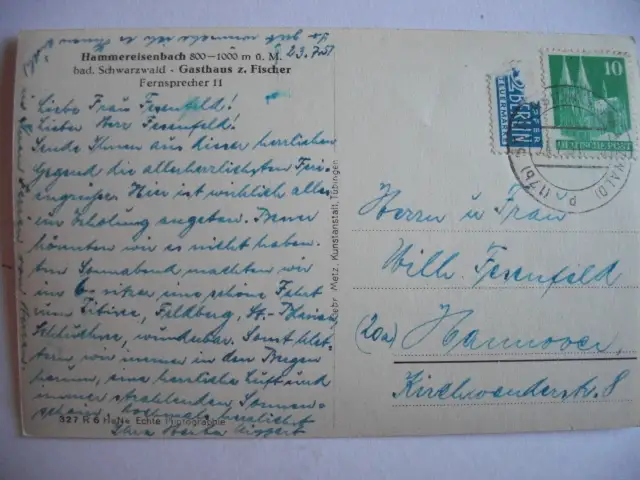 Hammereisenbach 800–1000 m ü. M.
bad. Schwarzwald - Gasthaus z. Fischer
Fernsprecher 11
23.7.51
Liebe Frau Fesenfeld!
Lieber Herr Fesenfeld!
Sende Ihnen aus dieser herrlichen
Gegend die allerherzlichsten
grüße. Hier ist wirklich alles
zur Erholung gegeben. Besser
könnten wir es nicht haben.
Am Sonnabend machten wir
im 6-sitzer eine schöne Fahrt
zum Titisee, Feldberg, St.-Blasien
Schluchsee, wunderbar. Sonst
wir immer in den Bergen
herum, eine herrliche Luft und
immer strahlenden Sonnen-
schein. Nochmals herzlichst
Ihre
327 R 6 HaNe Echte Photographie
Gebr. Metz, Kunstanstalt, Tübingen
2
NOTOPFER
BERLIN
STEUERMARKE
10
DEUTSCHE POST
(17b)
WALD)
Herrn u Frau
Willh. Fesenfeld
(20a) Hannover
Kirchwenderstr. 8